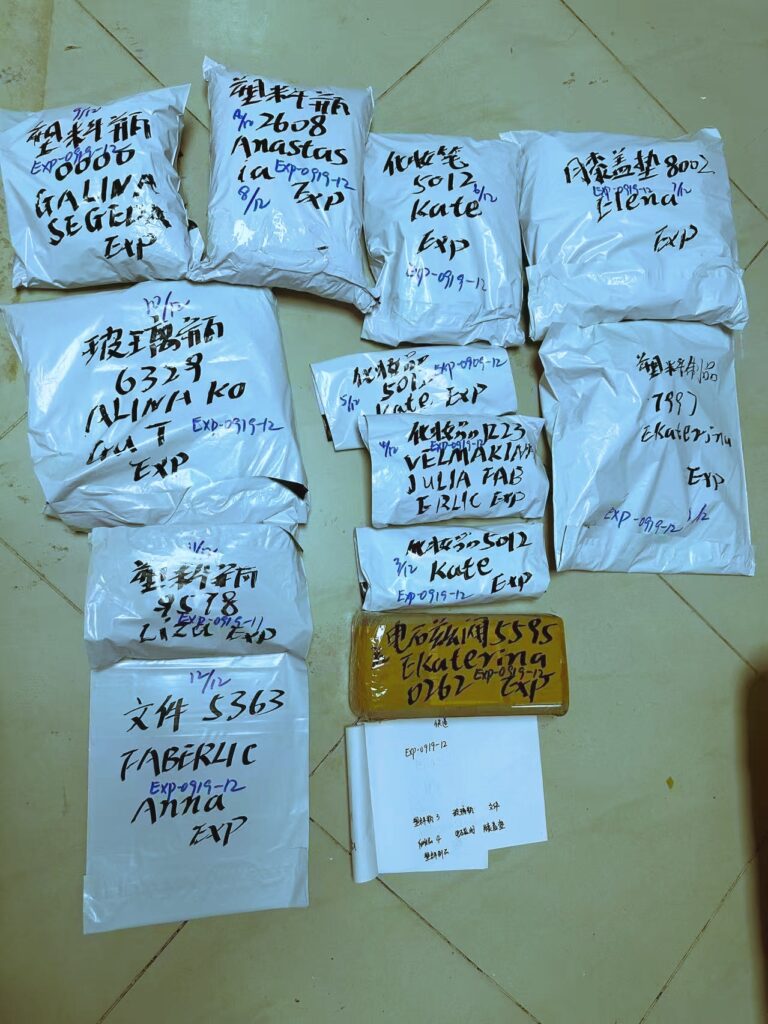 9/12
塑料瓶
EXP-0919-12
0606
GALINA
SEGEDA
EXP
塑料瓶
2608
Anastas
ia EXP-0919-12
8/12 EXP
化妆笔
5012 6/12
Kate
EXP
EXP-0919-12
膝盖垫 8002
EXP-0919-12 7/12
Elena
EXP
10/12
玻璃瓶
6329
ALINA KO
T EXP-0919-12
EXP
化妆品 EXP-0909-12
5/12 5012
Kate EXP
化妆品1223
4/12 EXP-0919-12
VELMAKINA
JULIA FAB
ERLIC EXP
塑料制品
7997
Ekaterina
EXP
EXP-0919-12 1/12
11/12
塑料瓶
9578
EXP-0919-11
Liza EXP
化妆品5012
3/12 Kate
EXP-0919-12 EXP
电磁阀5595
Ekaterina
0262 EXP-0919-12
EXP
12/12
文件 5363
FABERLIC
EXP-0919-12
Anna
EXP
快递
EXP-0919-12
塑料瓶 3 玻璃瓶 文件
化妆品 4 电磁阀 膝盖垫
塑料制品